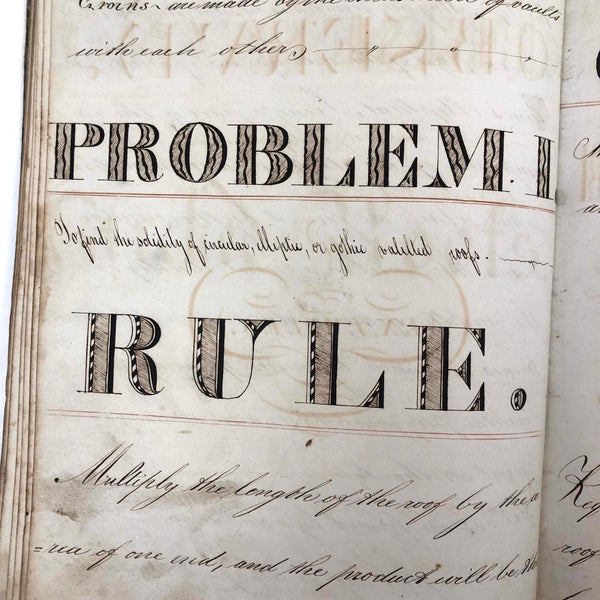 Groins are made by the intersection of vaults
with each other,
PROBLEM. I
To find the solidity of circular, elliptic, or gothic vaulted roofs.
RULE.
Multiply the length of the roof by the a
=rea of one end, and the product will be the
roof